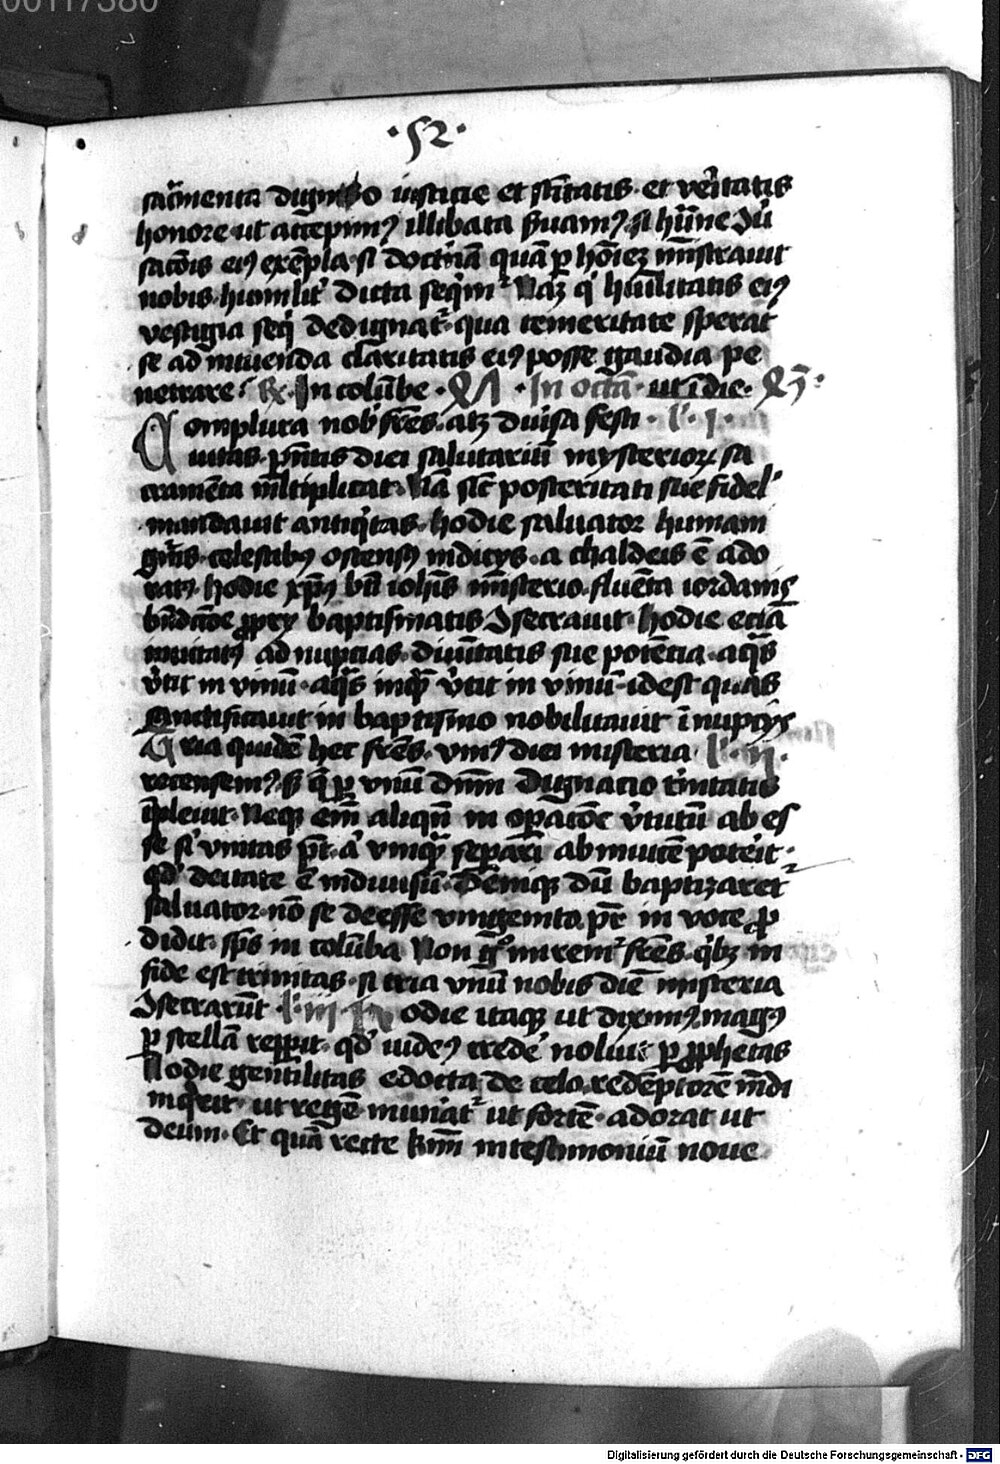 00117380
·52·
sacramenta digno iusticie et sanctitatis et veritatis
honore ut accepimus illibata
eius exempla si doctrinam quam per ministravit
nobis humiliter dicta sequimur Nam qui humilitatis eius
vestigia sequi dedignatur qua temeritate sperat
se ad intuenda claritatis eius posse gaudia pe
netrare In columbe In octa ut in die
Complura nobis fratres atque divisa festi l i
vitas presentis diei salutarium mysteriorum sa
cramenta multiplicat Nam sicut posteritati sue fidelis
mandavit antiquitas hodie salvator humani
generis celestibus ostensus indicijs a chaldeis est ado
ratus hodie christus beati iohannis ministerio fluenta iordanis
benedictione proprij baptismatis consecravit hodie etiam
invitatus ad nuptias divinitatis sue potentia aquas
vertit in vinum aquas inquam vertit in vinum idest quas
sanctificavit in baptismo nobilitavit in nuptijs
Tria quidem hec fratres unius diei misteria l ii
recensemus sed que per unum deum dignacio trinitatis
implevit Neque enim aliquem in operatione virtutum ab es
se sibi unitas patitur aut unusquisque separari ab invicem poterit
quod deitate est indivisum Denique dum baptizaretur
salvator non se deesse unigenito pater in voce pro
didit spiritus in columba Non ergo miremur fratres quibus in
fide est trinitas si tria unum nobis diem misteria
consecrarunt l iii Hodie itaque ut diximus magus
per stellam repperit quod iudeus credere noluit per prophetas
Hodie gentilitas edocta de celo redemptorem mundi
inquirit ut regem muneratur ut sortem adorat ut
deum Et quam recte in testimonium nove
Digitalisierung gefördert durch die Deutsche Forschungsgemeinschaft - DFG